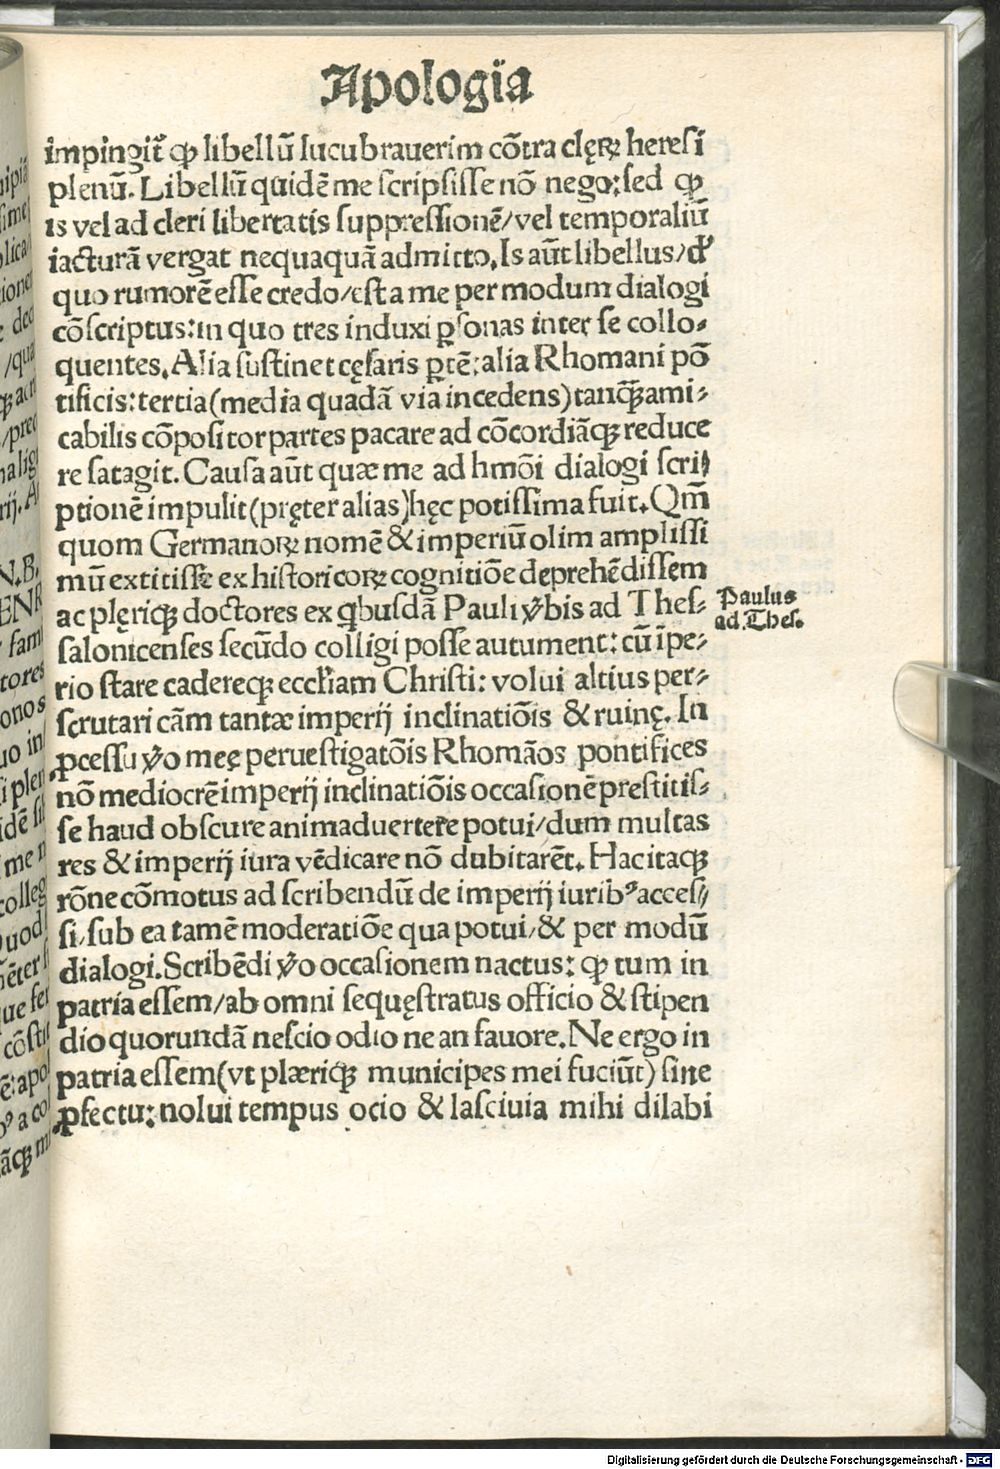 Apologia
impingit᷑ ꝙ libellū lucubrauerim cōtra clęꝝ heresi
plenū. Libellū quidē me scripsisse nō nego: sed ꝙ
is vel ad cleri libertatis suppressionē/vel temporaliū
iacturā vergat nequaquā admitto. Is aūt libellus/d'
quo rumorē esse credo/est a me per modum dialogi
cōscriptus: in quo tres induxi ꝑsonas inter se collo-
quentes. Alia sustinet cęsaris ꝑtē: alia Rhomani pō
tificis: tertia (media quadā via incedens) tanꝗ̃ ami-
cabilis cōpositor partes pacare ad cōcordiāqꝫ reduce
re satagit. Causa aūt quæ me ad hmōi dialogi scri/
ptionē impulit (pręter alias) hęc potissima fuit. Qm̄
quom Germanoꝝ nomē & imperiū olim amplissi
mū extitisse ex historicoꝝ cognitiōe deprehēdissem
ac plęriqꝫ doctores ex qbusdā Pauli ꝟbis ad Thes-
salonicenses secūdo colligi posse autument: cū īpe-
rio stare cadereqꝫ eccl'iam Christi: volui altius per-
scrutari cām tantæ imperij inclinatiōis & ruinę. In
ꝓcessu ꝟo meę peruestigatōis Rhomāos pontifices
nō mediocrē imperij inclinatiōis occasionē prestitis-
se haud obscure animaduertere potui/dum multas
res & imperij iura vēdicare nō dubitarēt. Hac itaqꝫ
rōne cōmotus ad scribendū de imperij iuribꝰ acces/
si, sub ea tamē moderatiōe qua potui/& per modū
dialogi. Scribēdi ꝟo occasionem nactus: ꝙ tum in
patria essem/ab omni sequęstratus officio & stipen
dio quorundā nescio odio ne an fauore. Ne ergo in
patria essem (vt plæriqꝫ municipes mei fuciūt) sine
ꝓfectu: nolui tempus ocio & lasciuia mihi dilabi
Paulus
ad. Thes.
Digitalisierung gefördert durch die Deutsche Forschungsgemeinschaft - DFG